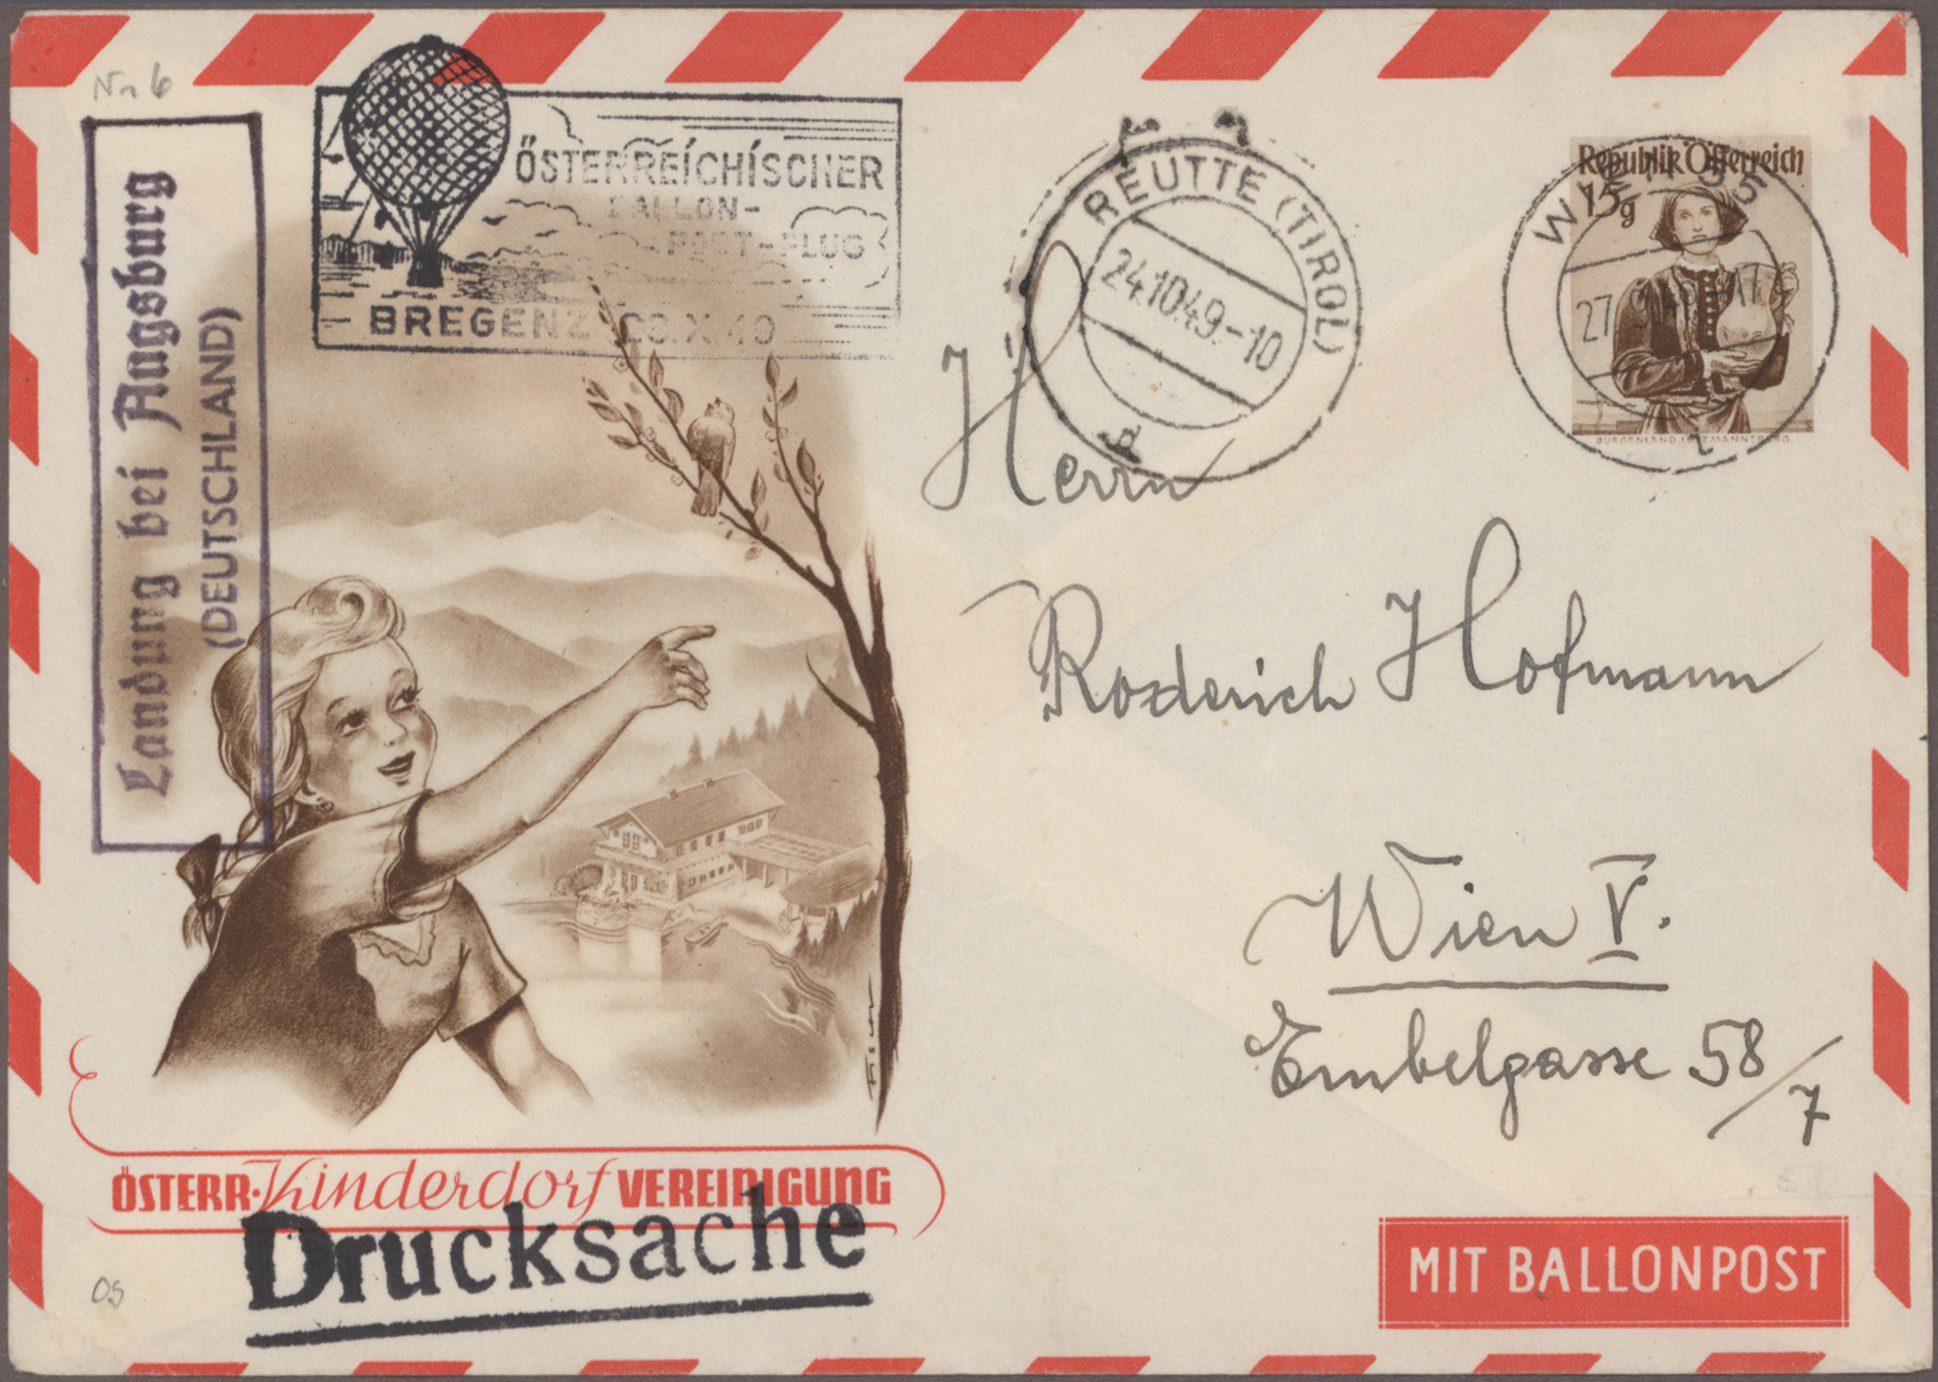 Nr 6
Landung bei Augsburg
(DEUTSCHLAND)
ÖSTERREICHISCHER
BALLON-
POST-FLUG
BREGENZ 23.X.49
REUTTE (TIROL)
24.10.49.-10
d
WIEN 55
27
Republik Österreich
15g
BURGENLAND, LUTZMANNSBURG
Herrn
Roderich Hofmann
Wien V.
Embelgasse 58/7
ÖSTERR. Kinderdorf VEREINIGUNG
Drucksache
MIT BALLONPOST